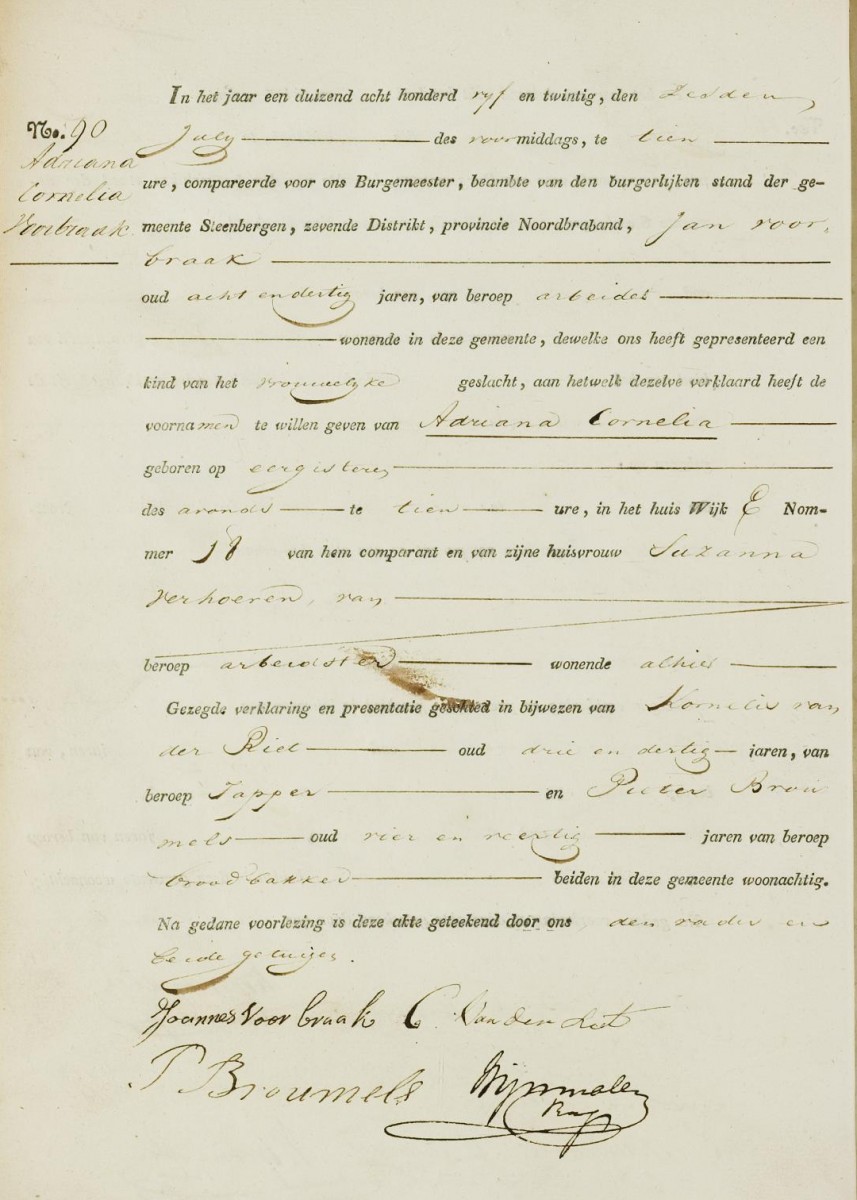 In het jaar een duizend acht honderd vyf en twintig, den Zesden
No. 90
July des voormiddags, te tien
Adriana
Cornelia
Voorbraak
ure, compareerde voor ons Burgemeester, beambte van den burgerlijken stand der ge-
meente Steenbergen, zevende Distrikt, provincie Noordbraband, Jan voor-
braak
oud acht en dertig jaren, van beroep arbeider
wonende in deze gemeente, dewelke ons heeft gepresenteerd een
kind van het vrouwelyke geslacht, aan hetwelk dezelve verklaard heeft de
voornamen te willen geven van Adriana Cornelia
geboren op eergisteren
des avonds te tien ure, in het huis Wijk E Nom-
mer 18 van hem comparant en van zijne huisvrouw Suzanna
Verhoeven, van
beroep arbeidster wonende alhier
Gezegde verklaring en presentatie geschied in bijwezen van Kornelis van
der Riet oud drie en dertig jaren, van
beroep Tapper en Pieter Brou
mels oud vier en veertig jaren van beroep
broodbakker beiden in deze gemeente woonachtig.
Na gedane voorlezing is deze akte geteekend door ons den vader en
beide getuigen.
Joannes Voorbraak C. Van der
P Broumels